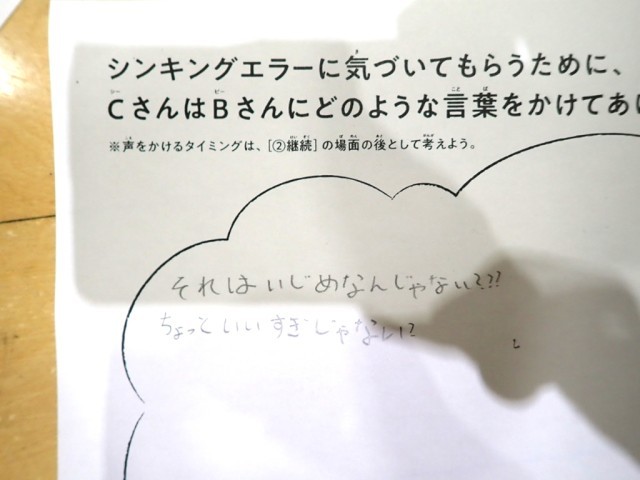 シンキングエラーに気づいてもらうために、
CさんはBさんにどのような言葉をかけてあ
※声をかけるタイミングは、[②継続]の場面の後として考えよう。
それはいじめなんじゃない???
ちょっといいすぎじゃない?